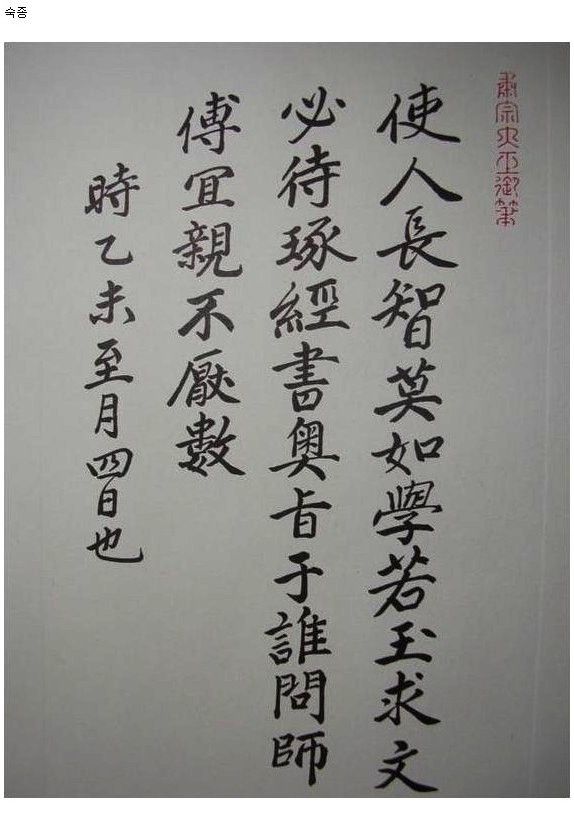 숙종
肅宗大王御筆
使人長智莫如學若玉求文
必待琢經書奧旨于誰問師
傅宜親不厭數
時乙未至月四日也